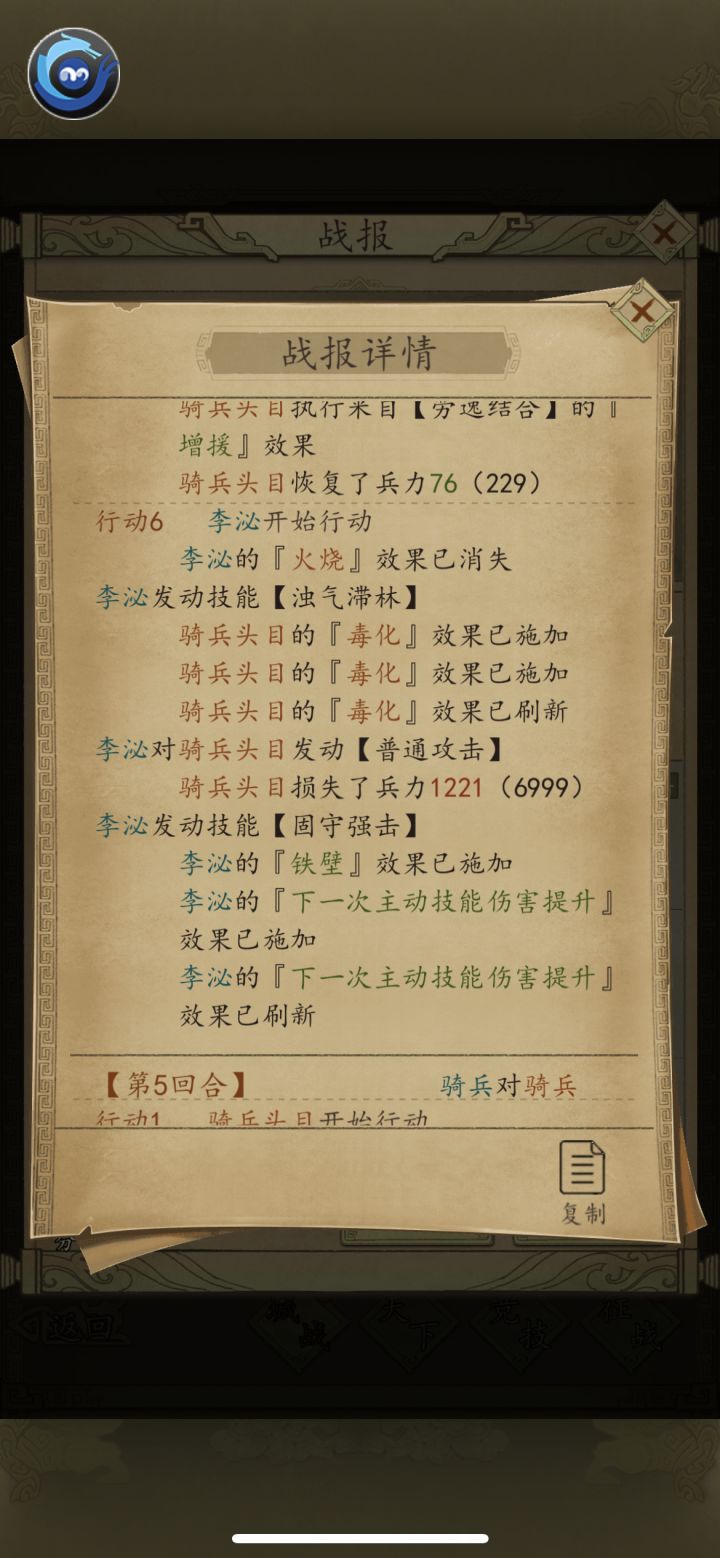 战报
战报详情
骑兵头目执行来自【劳逸结合】的『
增援』效果
骑兵头目恢复了兵力76（229）
行动6 李泌开始行动
李泌的『火烧』效果已消失
李泌发动技能【浊气滞林】
骑兵头目的『毒化』效果已施加
骑兵头目的『毒化』效果已施加
骑兵头目的『毒化』效果已刷新
李泌对骑兵头目发动【普通攻击】
骑兵头目损失了兵力1221（6999）
李泌发动技能【固守强击】
李泌的『铁壁』效果已施加
李泌的『下一次主动技能伤害提升』
效果已施加
李泌的『下一次主动技能伤害提升』
效果已刷新
【第5回合】 骑兵对骑兵
行动1 骑兵头目开始行动
复制
返回 天下 竞技 征战